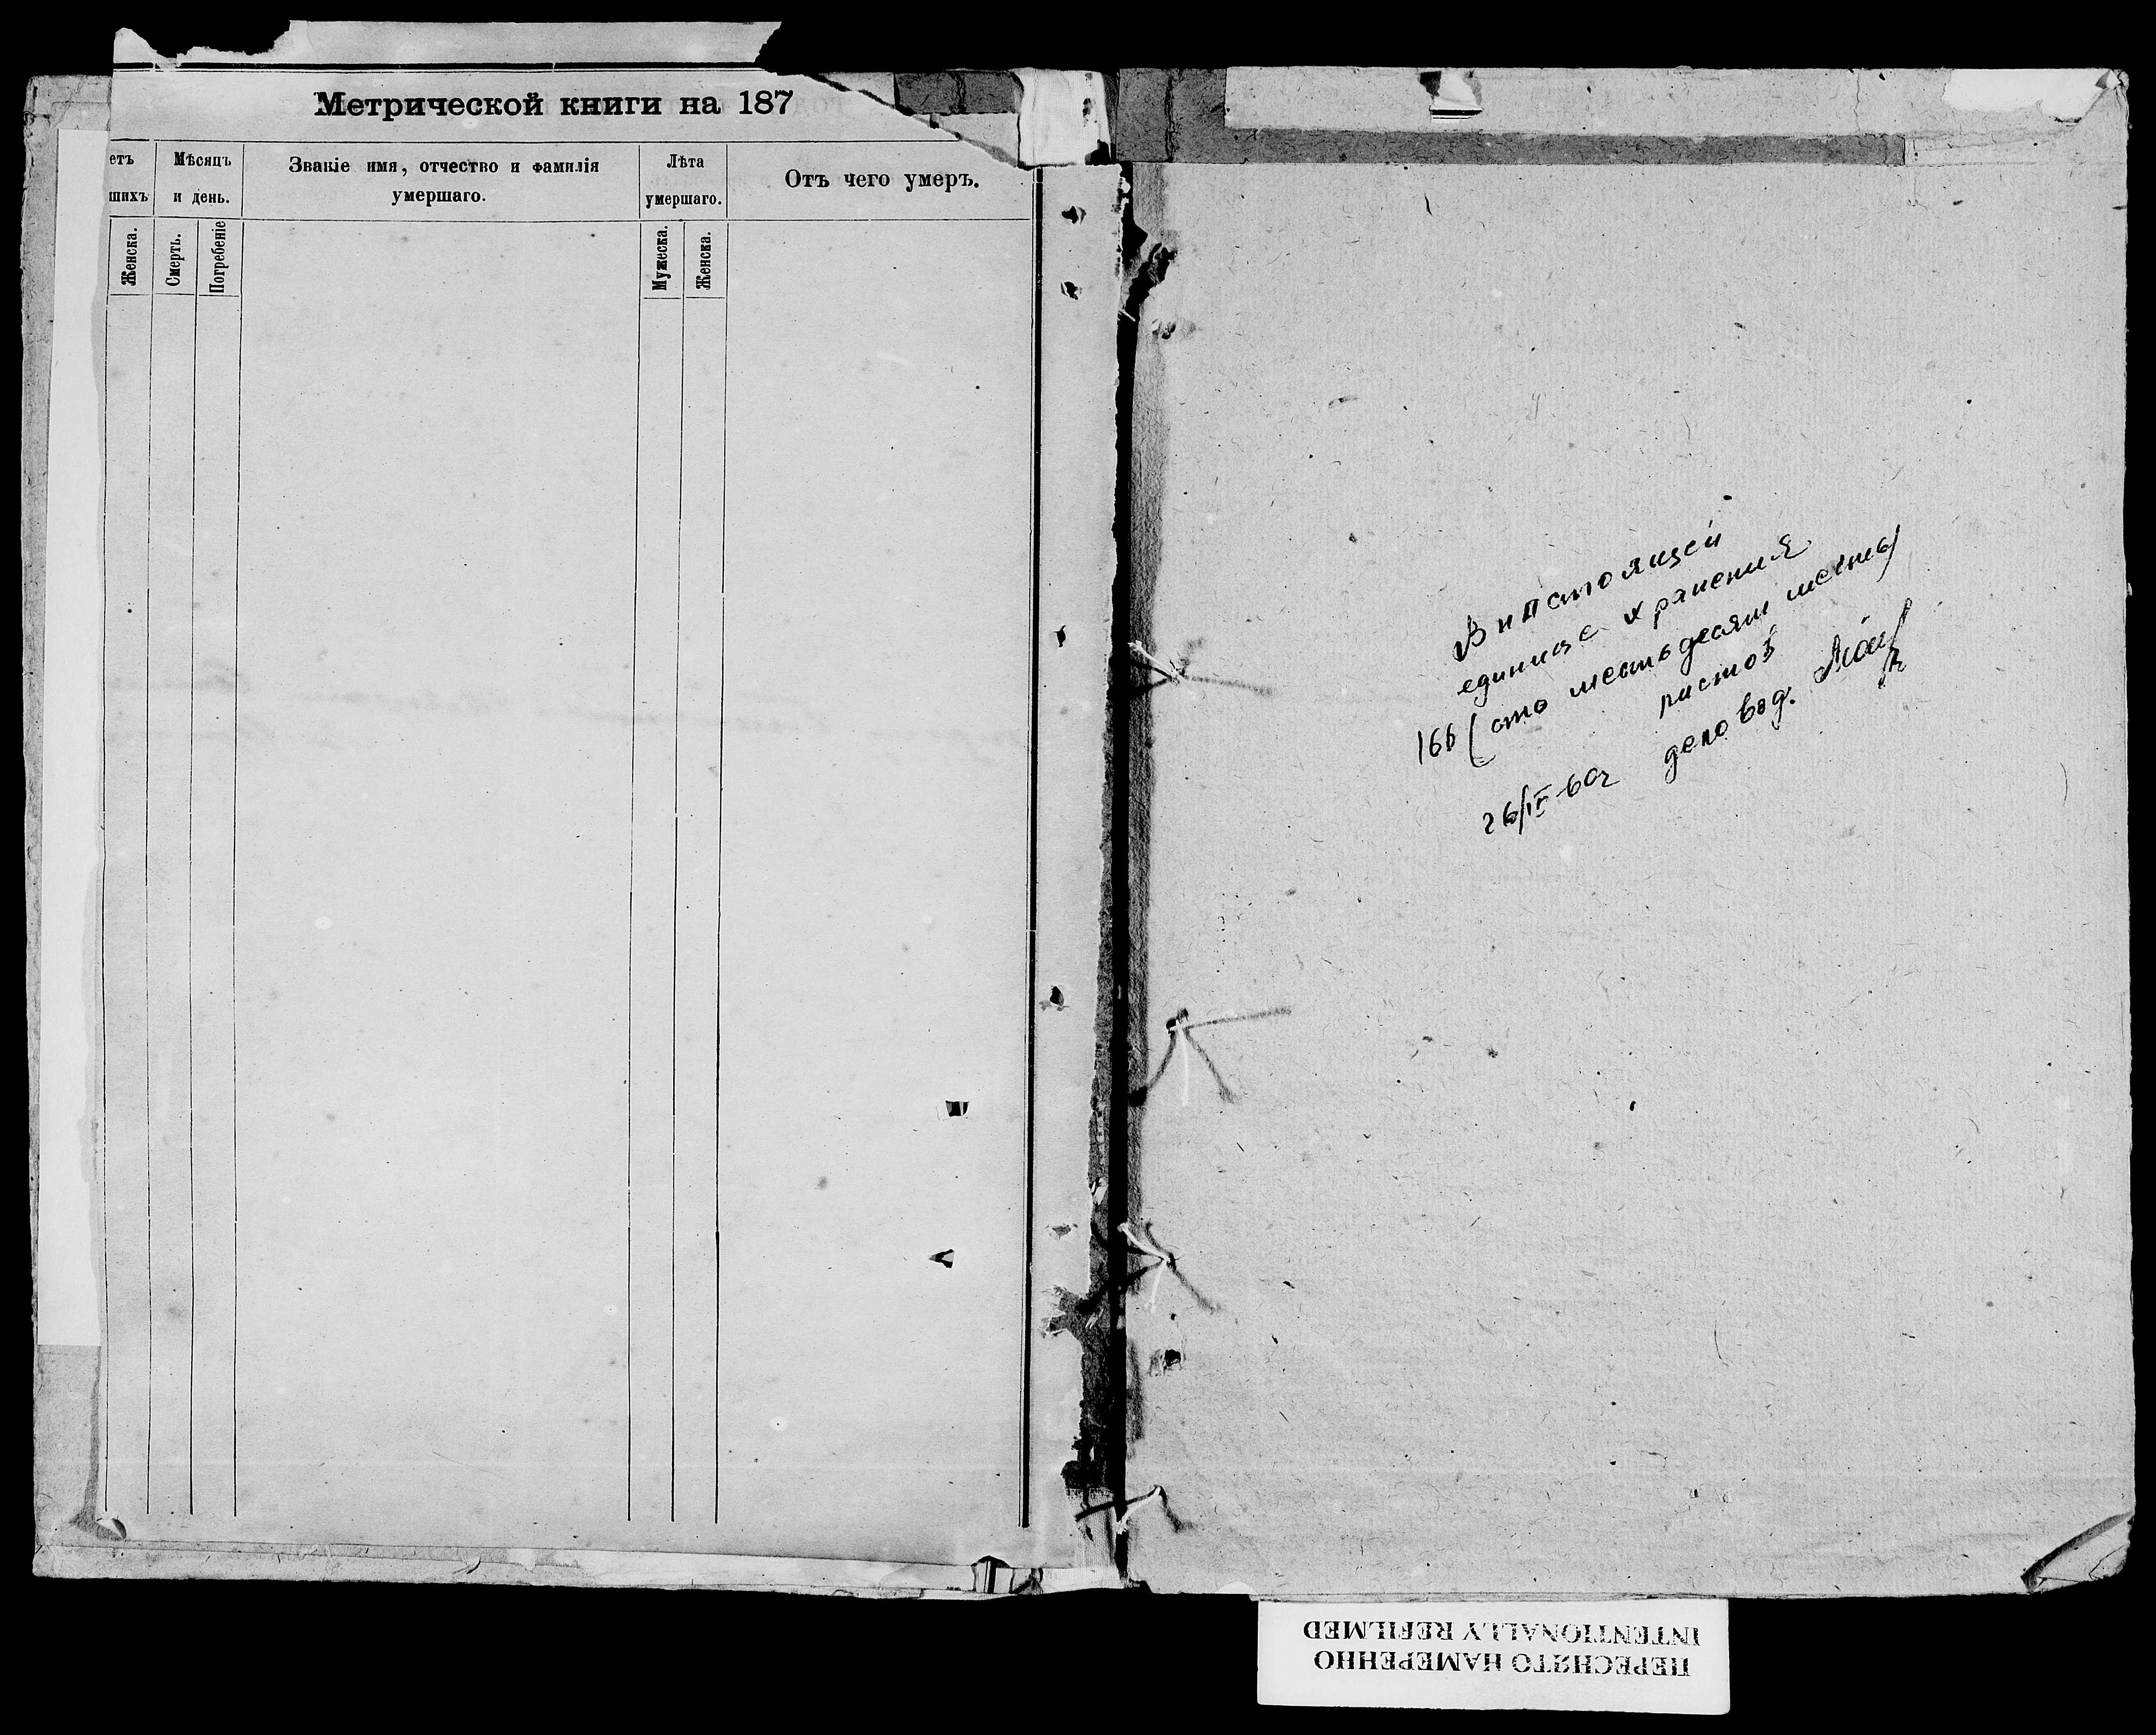 Метрической книги на 187
етъ
шихъ
Мѣсяцъ
и день.
Званіе имя, отчество и фамилія
умершаго.
Лѣта
умершаго.
Отъ чего умеръ.
Женска.
Смерть.
Погребеніе
Мужеска.
Женска.
В настоящей
единице хранения
166 (сто шестьдесят шесть)
листов
26/IV-60г деловод.
ПЕРЕСНЯТО НАМЕРЕННО
INTENTIONALLY REFILMED